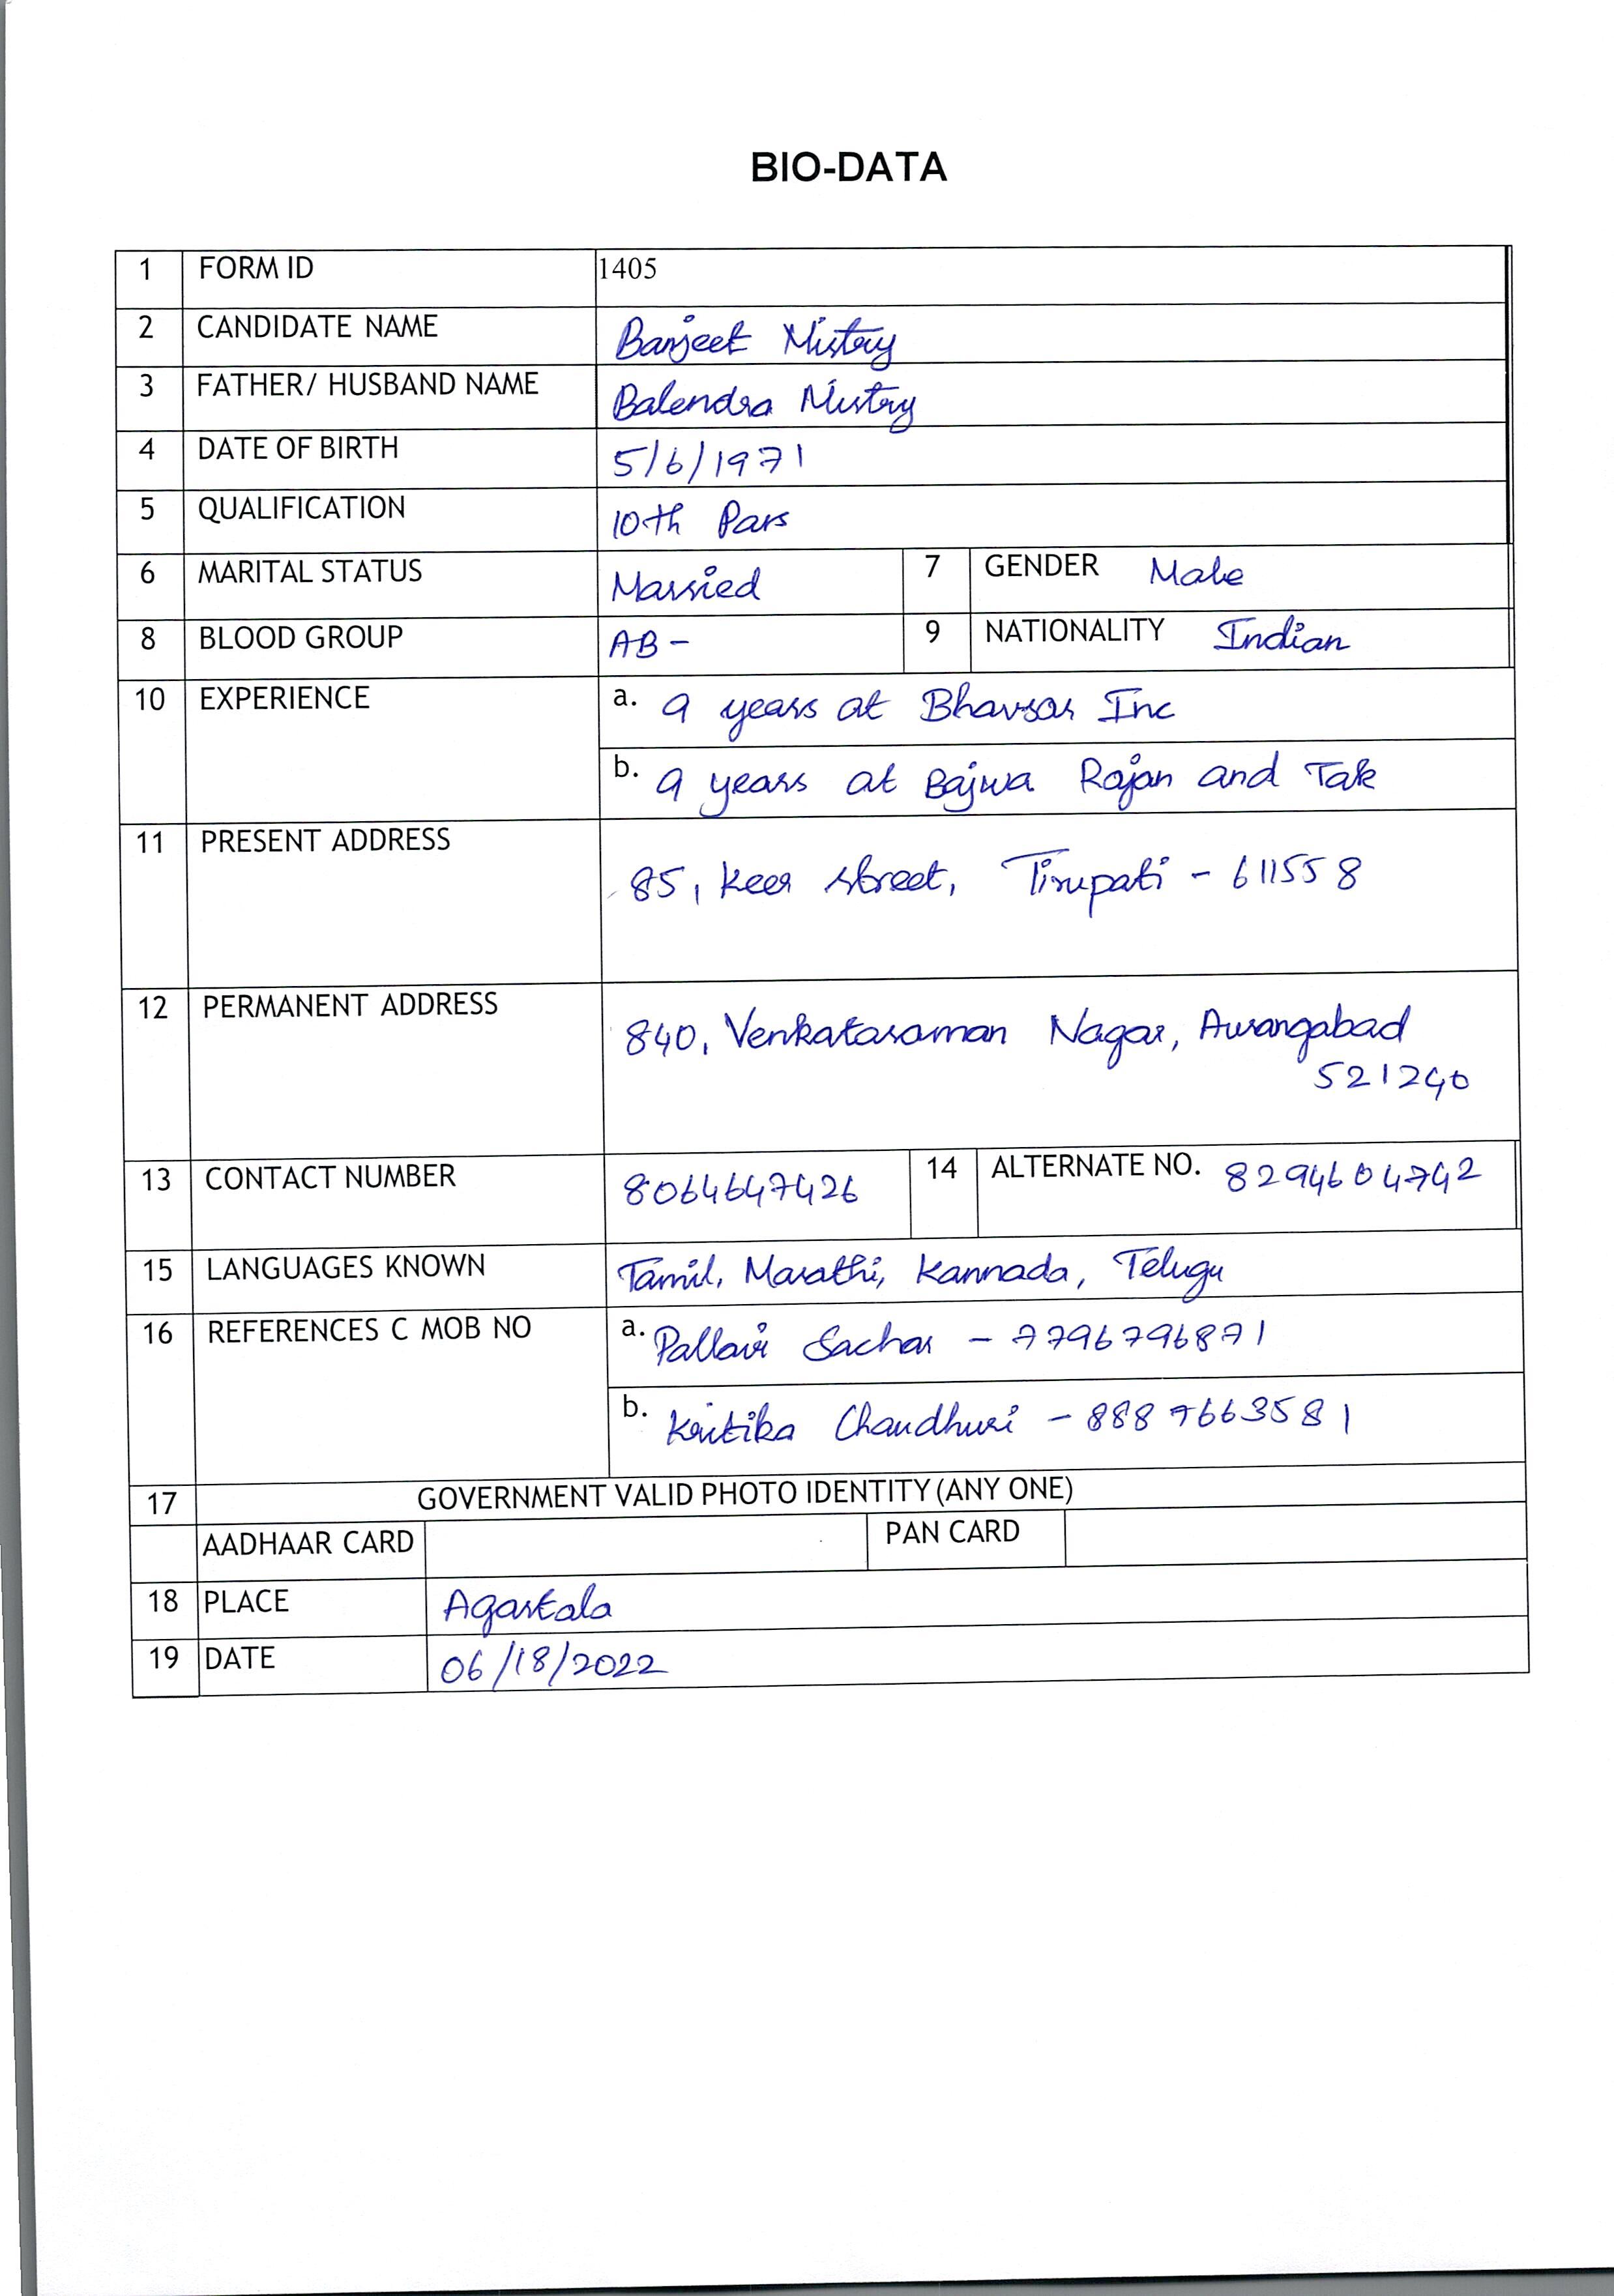 BIO-DATA
1 FORM ID 1405
2 CANDIDATE NAME Banjeet Mistry
3 FATHER/ HUSBAND NAME Balendra Mistry
4 DATE OF BIRTH 5/6/1971
5 QUALIFICATION 10th Pass
6 MARITAL STATUS Married 7 GENDER Male
8 BLOOD GROUP AB- 9 NATIONALITY Indian
10 EXPERIENCE a. 9 years at Bhavsar Inc
b. 9 years at Bajwa Rajan and Tak
11 PRESENT ADDRESS 85, Keer street, Tirupati - 611558
12 PERMANENT ADDRESS 840, Venkataraman Nagar, Aurangabad
521240
13 CONTACT NUMBER 8064647426 14 ALTERNATE NO. 8294604742
15 LANGUAGES KNOWN Tamil, Marathi, Kannada, Telugu
16 REFERENCES C MOB NO a. Pallavi Sachar - 7796796871
b. Kritika Chaudhuri - 8887663581
17 GOVERNMENT VALID PHOTO IDENTITY (ANY ONE)
AADHAAR CARD PAN CARD
18 PLACE Agartala
19 DATE 06/18/2022